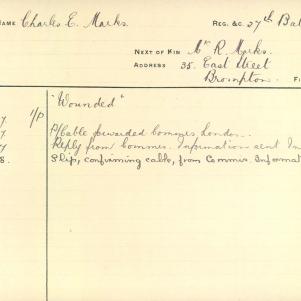 NAME Charles E. Marks. REG. &C. 27th Bat
NEXT OF KIN Mr R. Marks.
ADDRESS 35. East Street
Brompton. F
"Wounded"
1/P P/Cable forwarded Commrs. London.
7 Reply from Commrs. Information sent In
8. Slip, confirming cable, from Commrs. Informat